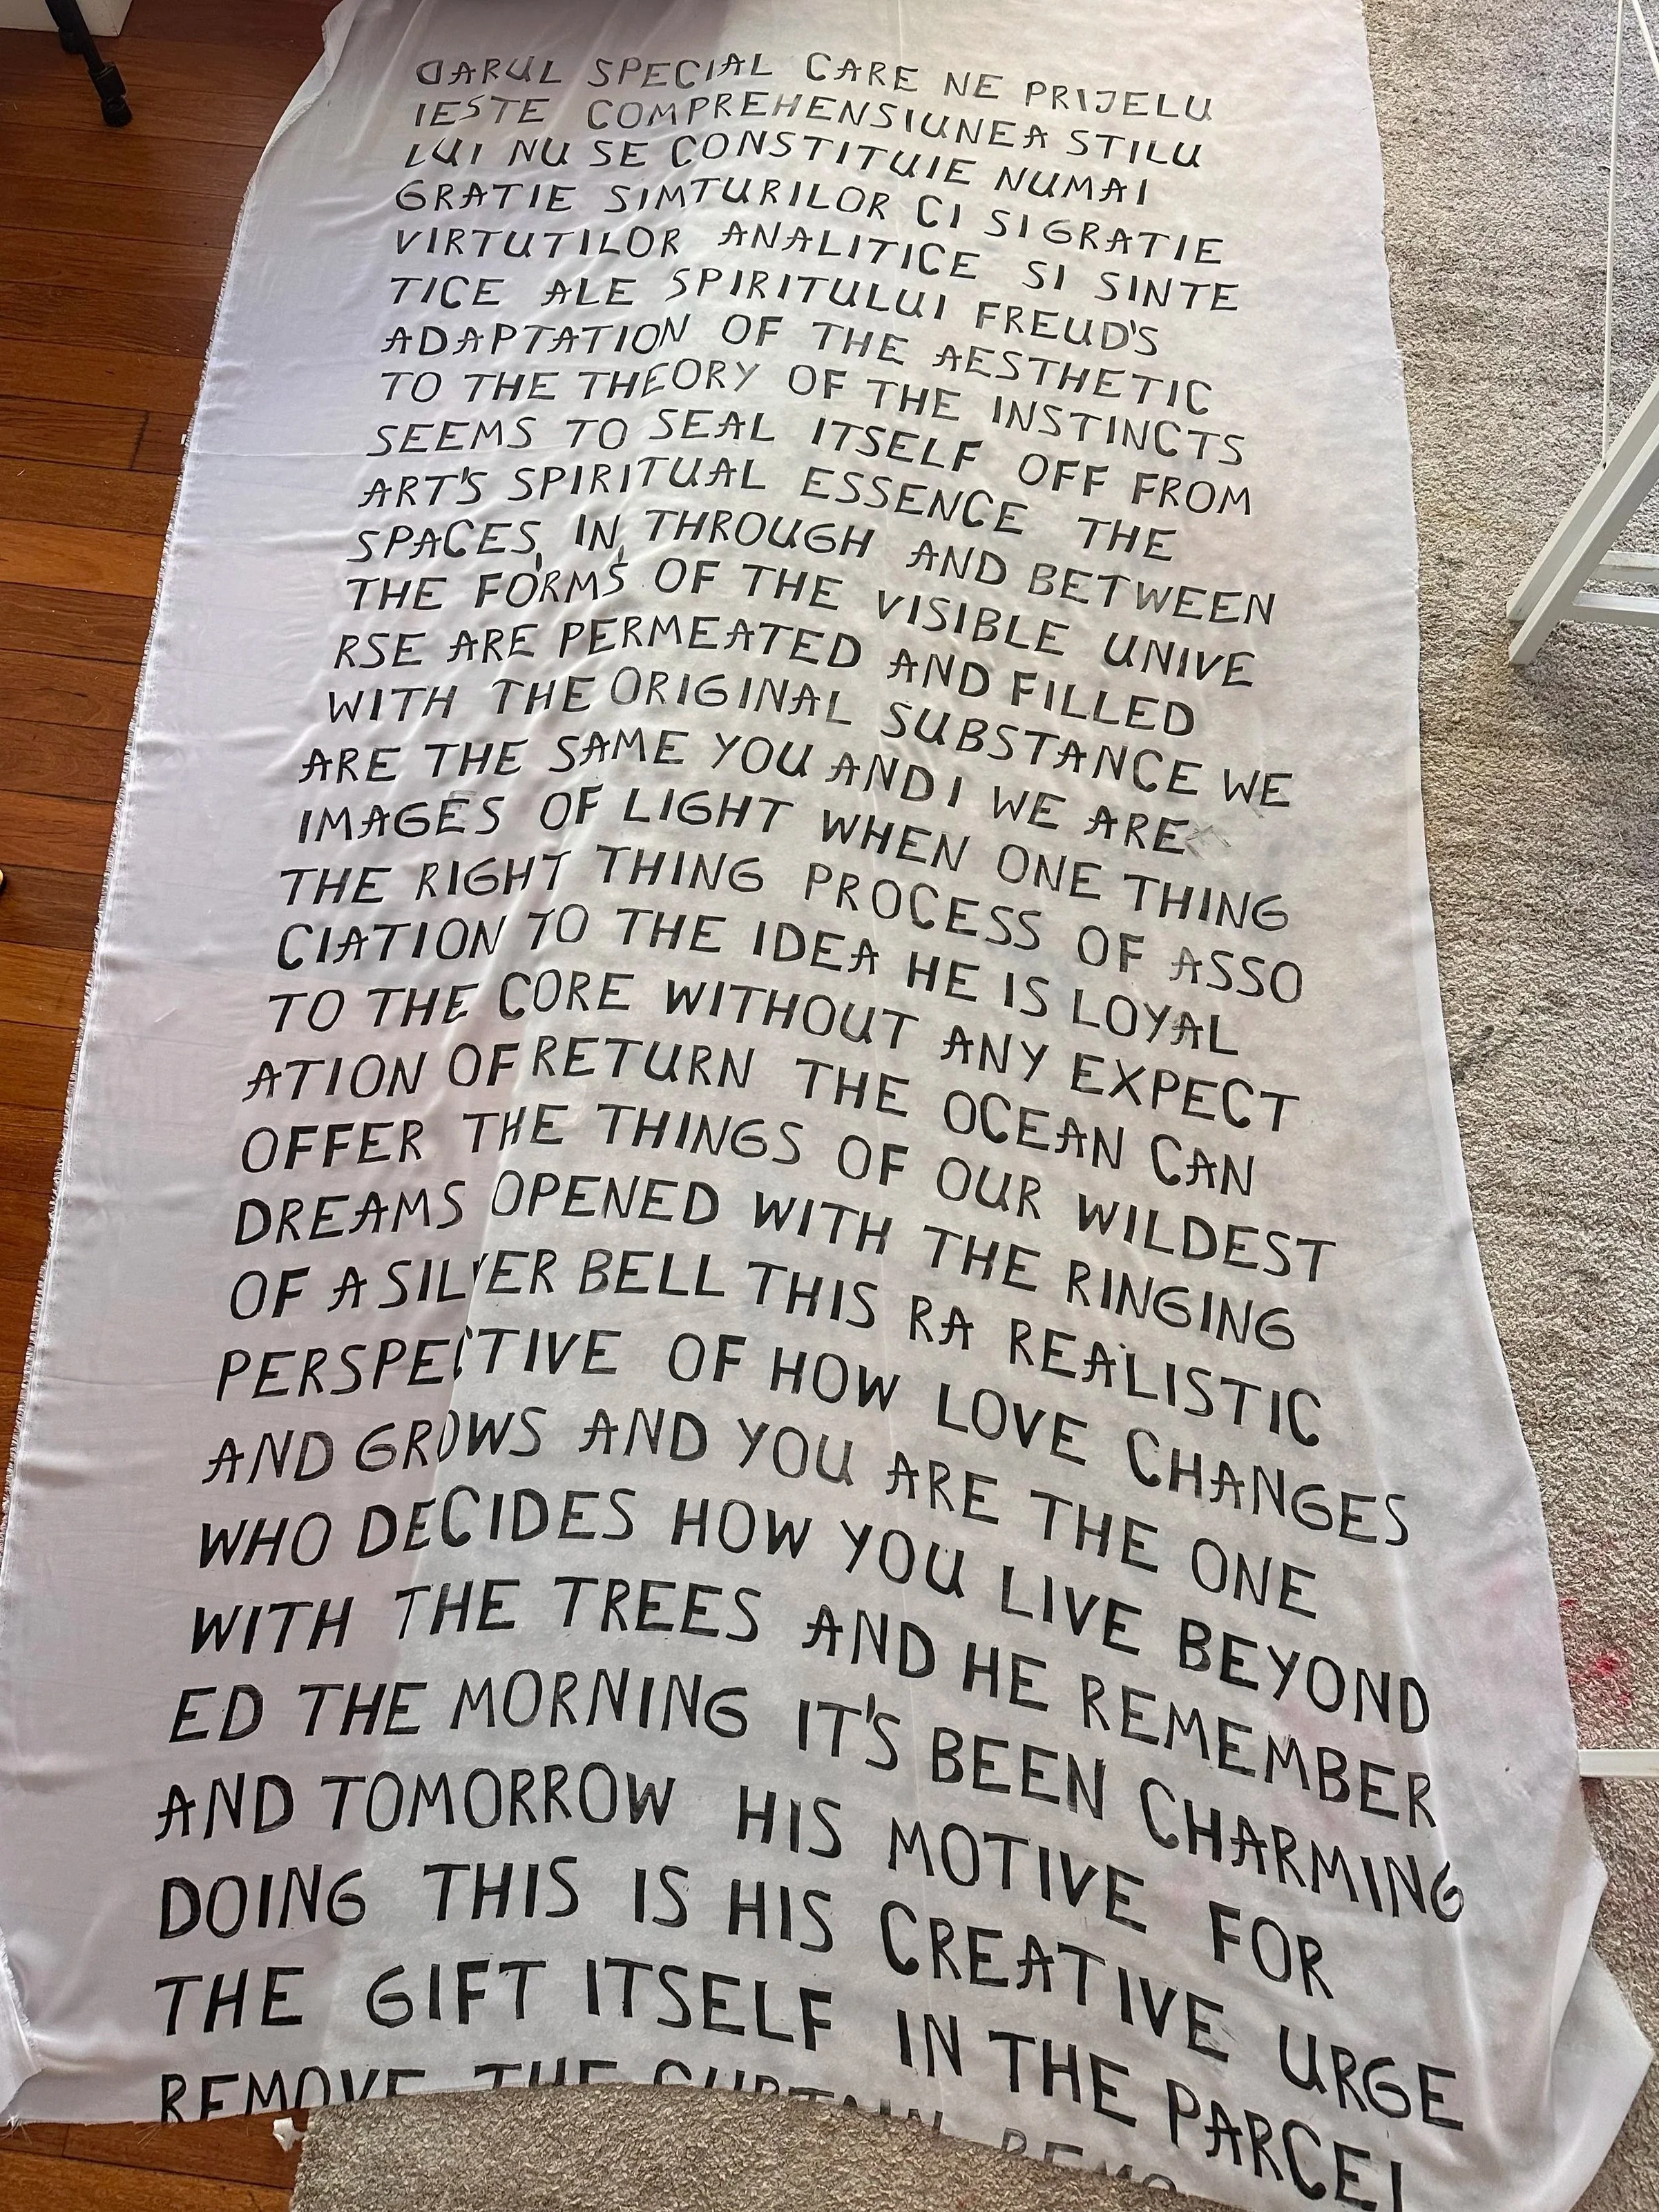 DARUL SPECIAL CARE NE PRIJELU
IESTE COMPREHENSIUNEA STILU
LUI NU SE CONSTITUIE NUMAI
GRATIE SIMTURILOR CI SI GRATIE
VIRTUTILOR ANALITICE SI SINTE
TICE ALE SPIRITULUI FREUD'S
ADAPTATION OF THE AESTHETIC
TO THE THEORY OF THE INSTINCTS
SEEMS TO SEAL ITSELF OFF FROM
ART'S SPIRITUAL ESSENCE THE
SPACES, IN, THROUGH AND BETWEEN
THE FORMS OF THE VISIBLE UNIVE
RSE ARE PERMEATED AND FILLED
WITH THE ORIGINAL SUBSTANCE WE
ARE THE SAME YOU AND I WE ARE
IMAGES OF LIGHT WHEN ONE THING
THE RIGHT THING PROCESS OF ASSO
CIATION TO THE IDEA HE IS LOYAL
TO THE CORE WITHOUT ANY EXPECT
ATION OF RETURN THE OCEAN CAN
OFFER THE THINGS OF OUR WILDEST
DREAMS OPENED WITH THE RINGING
OF A SILVER BELL THIS RA REALISTIC
PERSPECTIVE OF HOW LOVE CHANGES
AND GROWS AND YOU ARE THE ONE
WHO DECIDES HOW YOU LIVE BEYOND
WITH THE TREES AND HE REMEMBER
ED THE MORNING IT'S BEEN CHARMING
AND TOMORROW HIS MOTIVE FOR
DOING THIS IS HIS CREATIVE URGE
THE GIFT ITSELF IN THE PARCEL
REMOVE THE CURTAIN